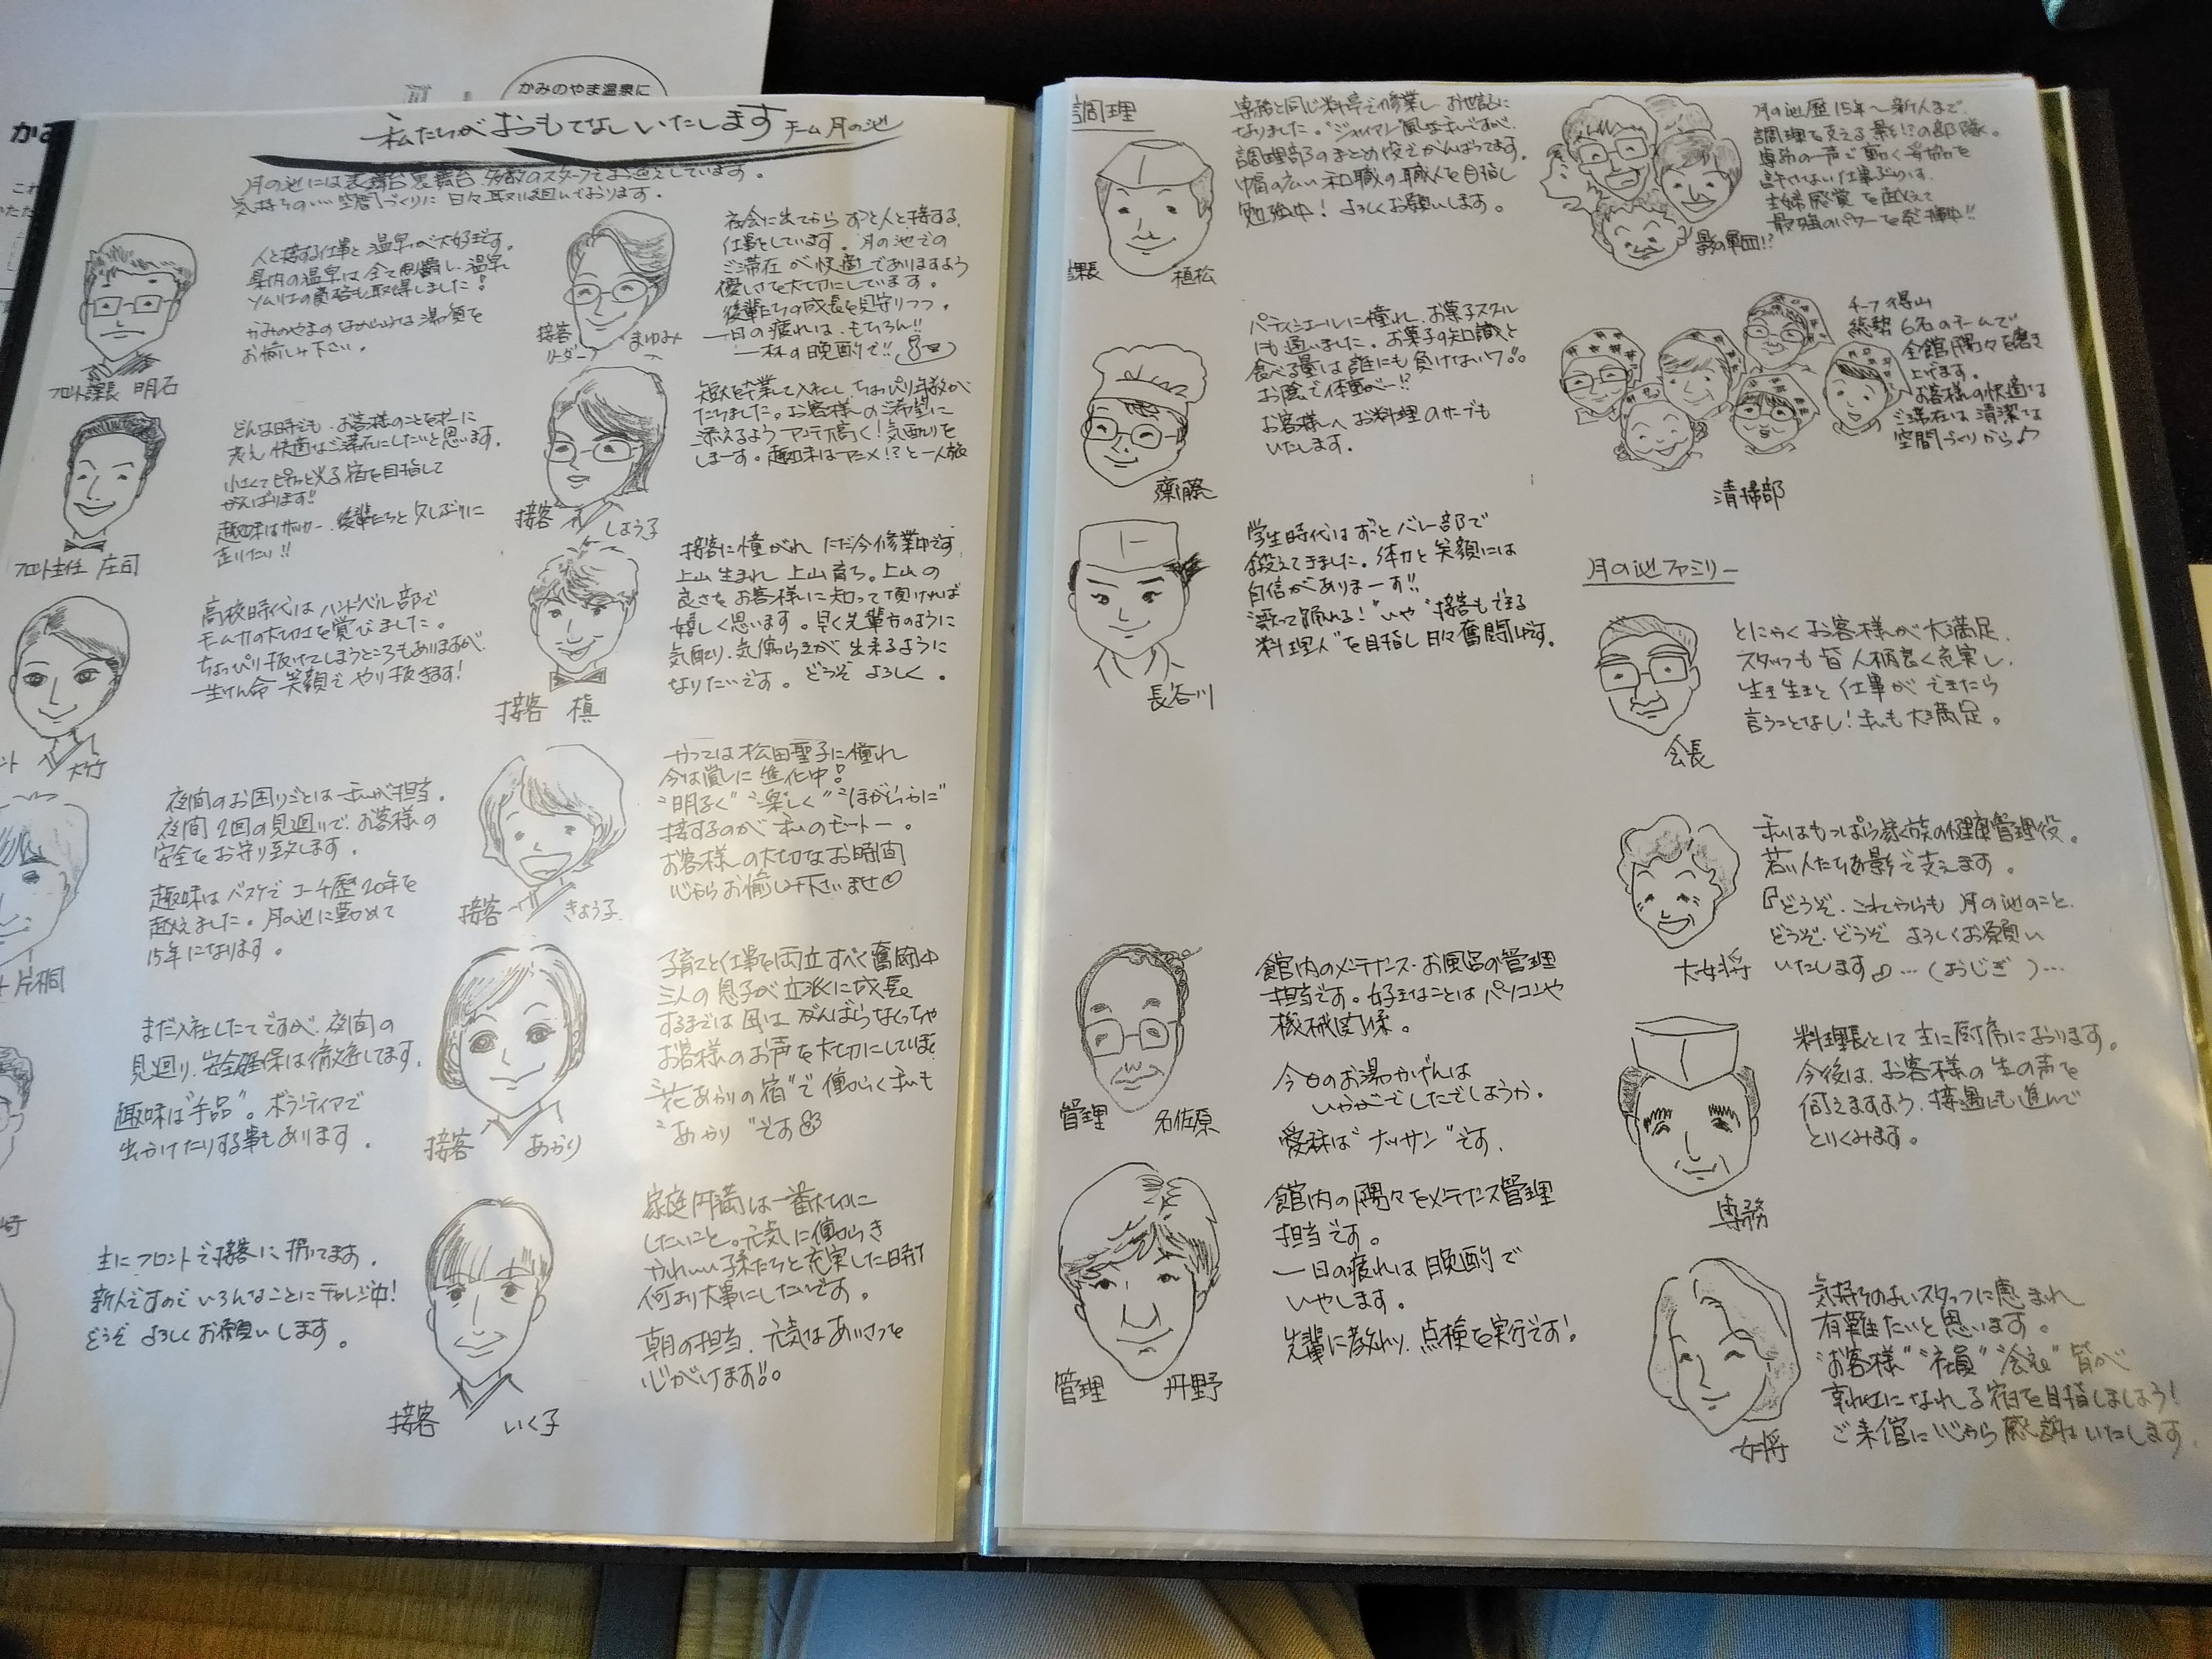 かみのやま温泉に
私たちがおもてなしいたします チーム月の池
月の池には表舞台裏舞台 多数のスタッフでお迎えしています。
気持ちのいい空間づくりに日々取り組んでおります。
人と接する仕事と温泉が大好きです。
県内の温泉は全て制覇し、温泉
ソムリエの資格も取得しました!
かみのやまのなめらかな湯質を
お愉しみ下さい。
フロント課長 明石
どんな時でも、お客様のことを第一に
考え 快適なご滞在にしたいと思います。
小さくてもピカッと光る宿を目指して
がんばります!!
趣味はサッカー、後輩たちと久しぶりに
走りたい!!
フロント主任 庄司
高校時代はハンドベル部で
チームの大切さを覚びました。
ちょっぴり抜けてしまうところもありますが、
一生けん命 笑顔でやり抜きます!
ント 大竹
夜間のお困りごとは私が担当。
夜間2回の見廻りで、お客様の
安全をお守り致します。
趣味はバスケで コーチ歴20年を
越えました。月の池に勤めて
15年になります。
片桐
まだ入社したてですが、夜間の
見廻り、安全確保は徹底してます。
趣味は"手品"。ボランティアで
出かけたりする事もあります。
崎
主にフロントで接客に就てます。
新人ですので いろんなことにチャレンジ中!
どうぞ よろしくお願いします。
社会に出てから ずっと人と接する、
仕事をしています。月の池での
ご滞在が快適でありますよう
優しさを大切にしています。
後輩たちの成長を見守りつつ、
一日の疲れは、もちろん!!
一杯の晩酌で!!
接客リーダー まゆみ
短大を卒業して入社し ちょっぴり年数が
たちました。お客様のご希望に
添えるよう アンテナ高く! 気配りを
しまーす。趣味はアニメ!?と一人旅
接客 しょう子
接客に憧がれ ただ今修業中です。
上山生まれ 上山育ち。上山の
良さを お客様に知って頂ければ
嬉しく思います。早く先輩方のように
気配り、気働らきが 出来るように
なりたいです。どうぞ よろしく。
接客 槙
かつては 松田聖子に憧れ
今は貫しに進化中!
"明るく" "楽しく" "ほがらかに"
接するのが 私のモットー。
お客様の大切なお時間
心からお愉しみ下さいませ
接客 きょう子
子育てと仕事を両立すべく奮闘中
三人の息子が立派に成長
するまでは 母は がんばらなくっちゃ
お客様のお声を大切にしていま
"花あかりの宿"で 働らく私も
"あかり"です
接客 あかり
家庭円満は一番大切に
したいこと。元気に働らき
かわいい孫たちと充実した日時
何より大事にしたいです。
朝の担当、元気なあいさつを
心がけます!!
接客 いく子
調理
専務と同じ料亭で修業し お世話に
なりました。"ジャイアン"風な私ですが、
調理部のまとめ役でがんばってます。
幅の広い和職の職人を目指し
勉強中! よろしくお願いします。
課長 植松
パティシエールに憧れ、お菓子スクール
にも通いました。お菓子の知識と
食べる量は誰にも負けないワ!!
お陰で体重がー!?
お客様へ お料理のサーブも
いたします。
齋藤
学生時代はずっとバレー部で
鍛えてきました。体力と笑顔には
自信がありまーす!!
"歌って踊れる!"いや"接客もできる
料理人"を目指し日々奮闘中です。
長谷川
館内のメンテナンス・お風呂の管理
担当です。好きなことはパソコンや
機械関係。
今日のお湯かげんは
いかがでしたでしょうか。
愛称は"ナッサン"です。
管理 名佐原
館内の隅々をメンテナンス管理
担当です。
一日の疲れは 晩酌で
いやします。
先輩に教わり、点検を実行です!
管理 丹野
月の池歴15年〜新人まで、
調理を支える影!?の部隊。
専務の一声で動く 妥協を
許さない仕事ぶりは、
主婦感覚を越えて
最強のパワーを発揮中!!
影の軍団!?
チーフ 得山
総勢6名のチームで
全館隅々を磨き
上げます。
お客様の快適な
ご滞在は清潔な
空間づくりから♪
清掃部
月の池ファミリー
とにかくお客様が大満足、
スタッフも皆人柄良く充実し、
生き生きと仕事ができたら
言うことなし! 私も大満足。
会長
私はもっぱら家族の健康管理役。
若い人たちを影で支えます。
『どうぞ、これからも 月の池のこと、
どうぞ、どうぞ よろしくお願い
いたします♪…(おじぎ)…
大女将
料理長として主に厨房におります。
今後は、お客様の生の声を
伺えますよう、接遇にも進んで
とりくみます。
専務
気持ちのよいスタッフに恵まれ
有難たいと思います。
"お客様" "社員" "会社"皆が
幸せになれる宿を目指しましょう!
ご来館に心から感謝いたします
女将